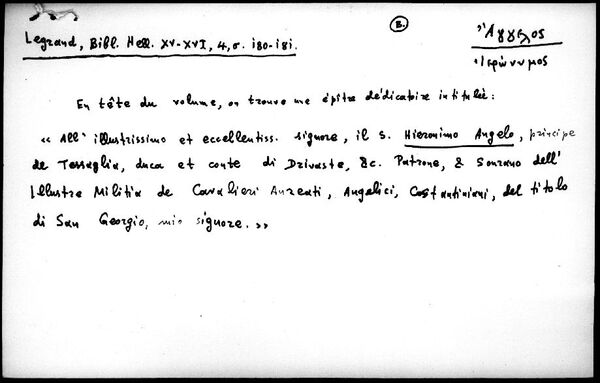 B.
Ἄγγελος
Ἱερώνυμος
Legrand, Bibl. Hell. XV-XVI, 4, σ. 180-181.
En tête du volume, on trouve une épître dédicatoire intitulée:
«All' illustrissimo et eccellentiss. signore, il S. Hieronimo Angelo, principe
de Tessaglia, duca et conte di Drivaste, &c. Patrone, & Sourano dell'
Illustre Militia de Cavalieri Aureati, Angelici, Costantiniani, del titolo
di San Georgio, mio signore.»